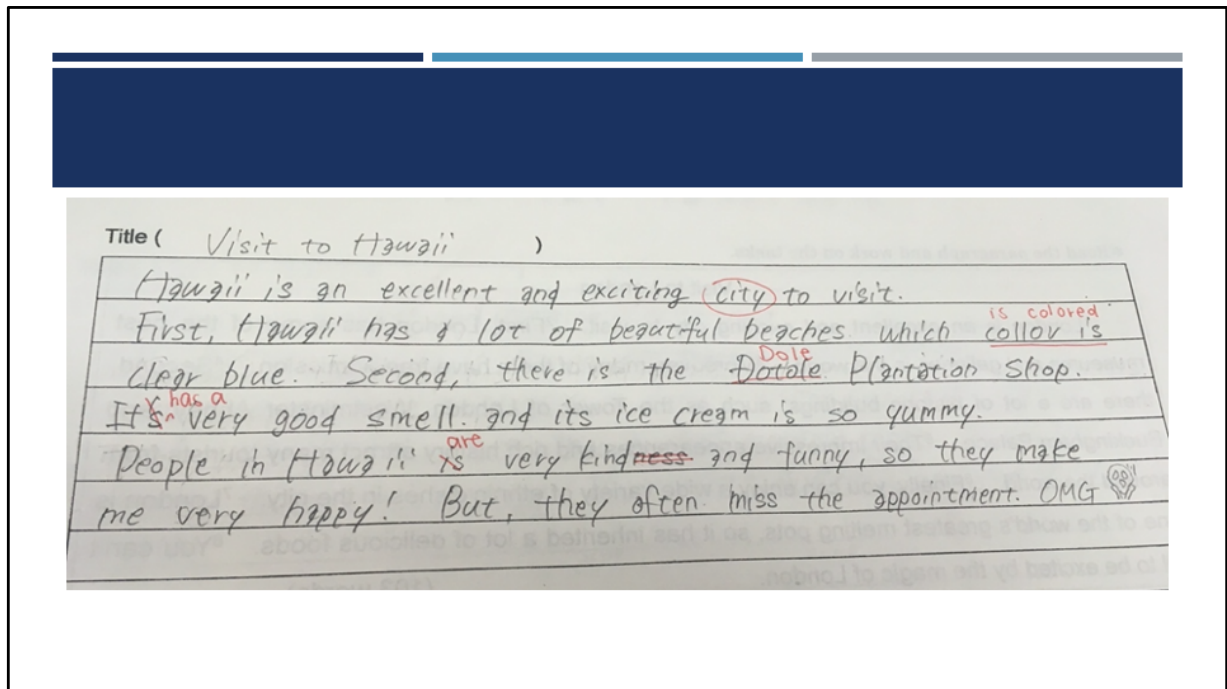 Title ( Visit to Hawaii )
Hawaii is an excellent and exciting city to visit.
is colored
First, Hawaii has a lot of beautiful beaches which collor is
Dole
clear blue. Second, there is the Dotole Plantation Shop.
has a
It's very good smell. and its ice cream is so yummy.
are
People in Hawaii is very kindness and funny, so they make
me very happy! But, they often miss the appointment. OMG